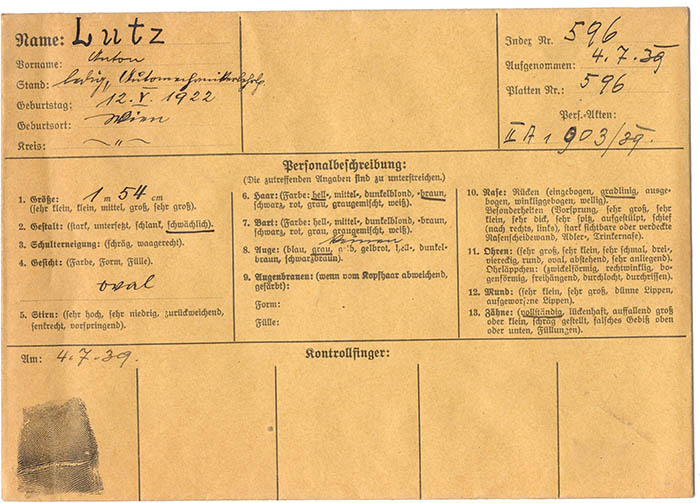 Name: Lutz
Vorname: Anton
Stand: ledig, Automechanikerlehrlg.
Geburtstag: 12. V. 1922
Geburtsort: Wien
Kreis: — " —
Index Nr. 596
Aufgenommen: 4.7.39
Platten Nr.: 596
Pers.-Akten:
II A 1 903/39.
Personalbeschreibung:
(Die zutreffenden Angaben sind zu unterstreichen.)
1. Größe: 1 m 54 cm
(sehr klein, klein, mittel, groß, sehr groß).
2. Gestalt: (stark, untersetzt, schlank, schwächlich).
3. Schulterneigung: (schräg, waagerecht).
4. Gesicht: (Farbe, Form, Fülle).
oval
5. Stirn: (sehr hoch, sehr niedrig, zurückweichend,
senkrecht, vorspringend).
6. Haar: (Farbe: hell-, mittel-, dunkelblond, -braun,
schwarz, rot, grau, graugemischt, weiß).
7. Bart: (Farbe: hell-, mittel-, dunkelblond, -braun,
schwarz, rot, grau, graugemischt, weiß).
8. Auge: (blau, grau, gelb, gelbrot, hell-, dunkel-
braun, schwarzbraun).
9. Augenbrauen: (wenn vom Kopfhaar abweichend,
gefärbt):
Form:
Fülle:
10. Nase: Rücken (eingebogen, gradlinig, ausge-
bogen, winkliggebogen, wellig).
Besonderheiten (Vorsprung, sehr groß, sehr
klein, sehr dick, sehr spitz, aufgestülpt, schief
(nach rechts, links), stark sichtbare oder verdeckte
Nasenscheidewand, Adler-, Trinkernase).
11. Ohren: (sehr groß, sehr klein, sehr schmal, drei-,
viereckig, rund, oval, abstehend, sehr anliegend).
Ohrläppchen: (zwickelförmig, rechtwinklig, bo-
genförmig, freihängend, durchlocht, durchrissen).
12. Mund: (sehr klein, sehr groß, dünne Lippen,
aufgeworfene Lippen).
13. Zähne: (vollständig, lückenhaft, auffallend groß
oder klein, schräg gestellt, falsches Gebiß oben
oder unten, Füllungen).
Am: 4.7.39.
Kontrollfinger: